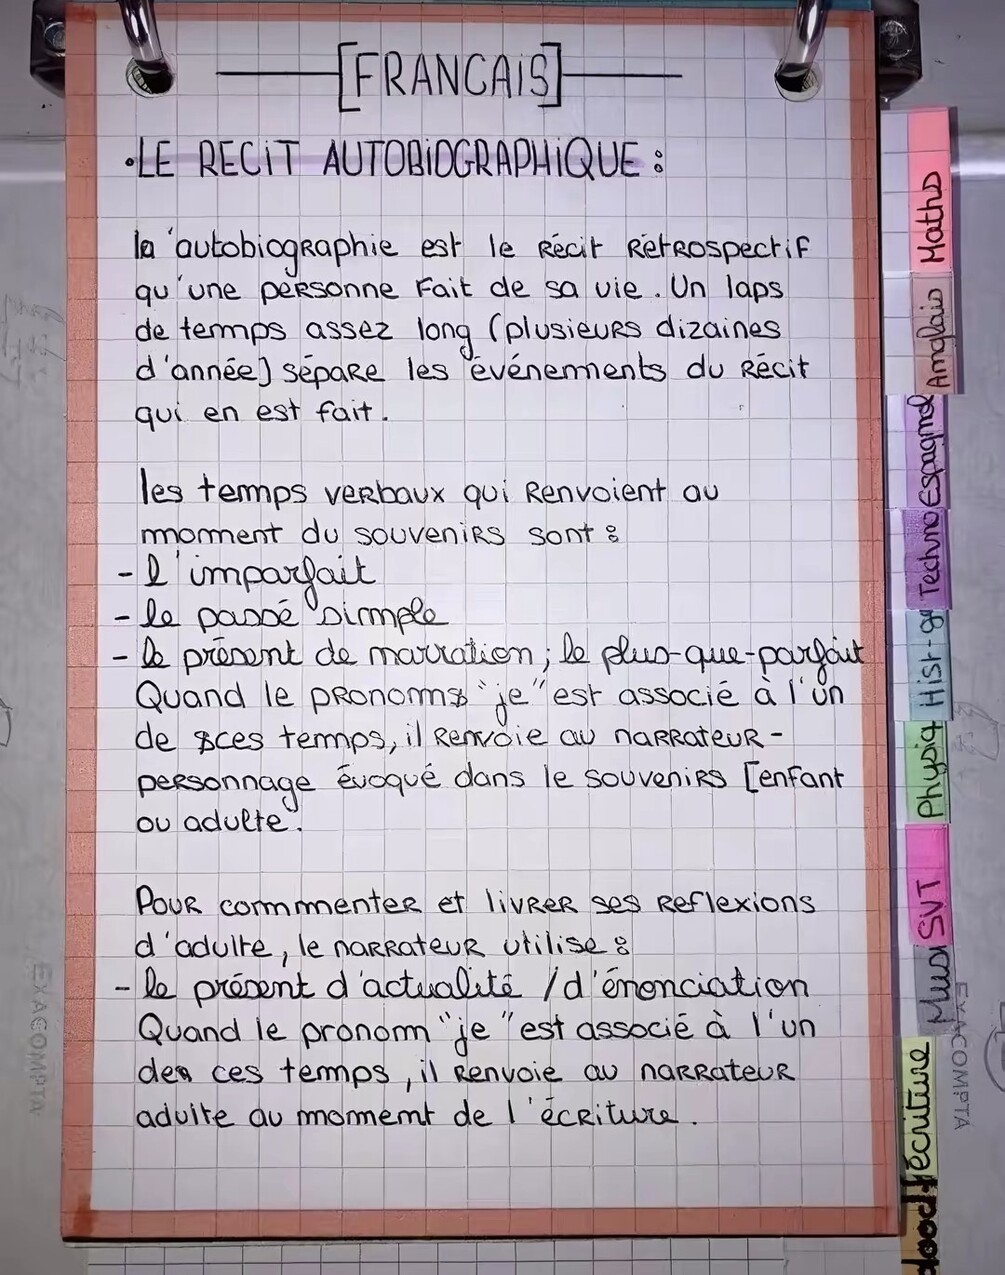 [FRANCAiS]
•LE RECiT AUTOBiOGRAPHiQUE :
la 'autobiographie est le récit rétrospectif
qu'une personne fait de sa vie. Un laps
de temps assez long (plusieurs dizaines
d'année) sépare les événements du récit
qui en est fait.
les temps verbaux qui renvoient au
moment du souvenirs sont :
- l'imparfait
- le passé simple
- le présent de narration ; le plus-que-parfait
Quand le pronoms "je" est associé à l'un
de ces temps, il renvoie au narrateur-
personnage évoqué dans le souvenirs [enfant
ou adulte.
Pour commenter et livrer ses reflexions
d'adulte, le narrateur utilise :
- le présent d'actualité / d'énonciation
Quand le pronom "je" est associé à l'un
des ces temps, il renvoie au narrateur
adulte au moment de l'écriture.
Maths
Anglais
Espagnol
Techno
Hist-géo
Physiq
SVT
Mus
écriture
EXACOMPTA
EXACOMPTA